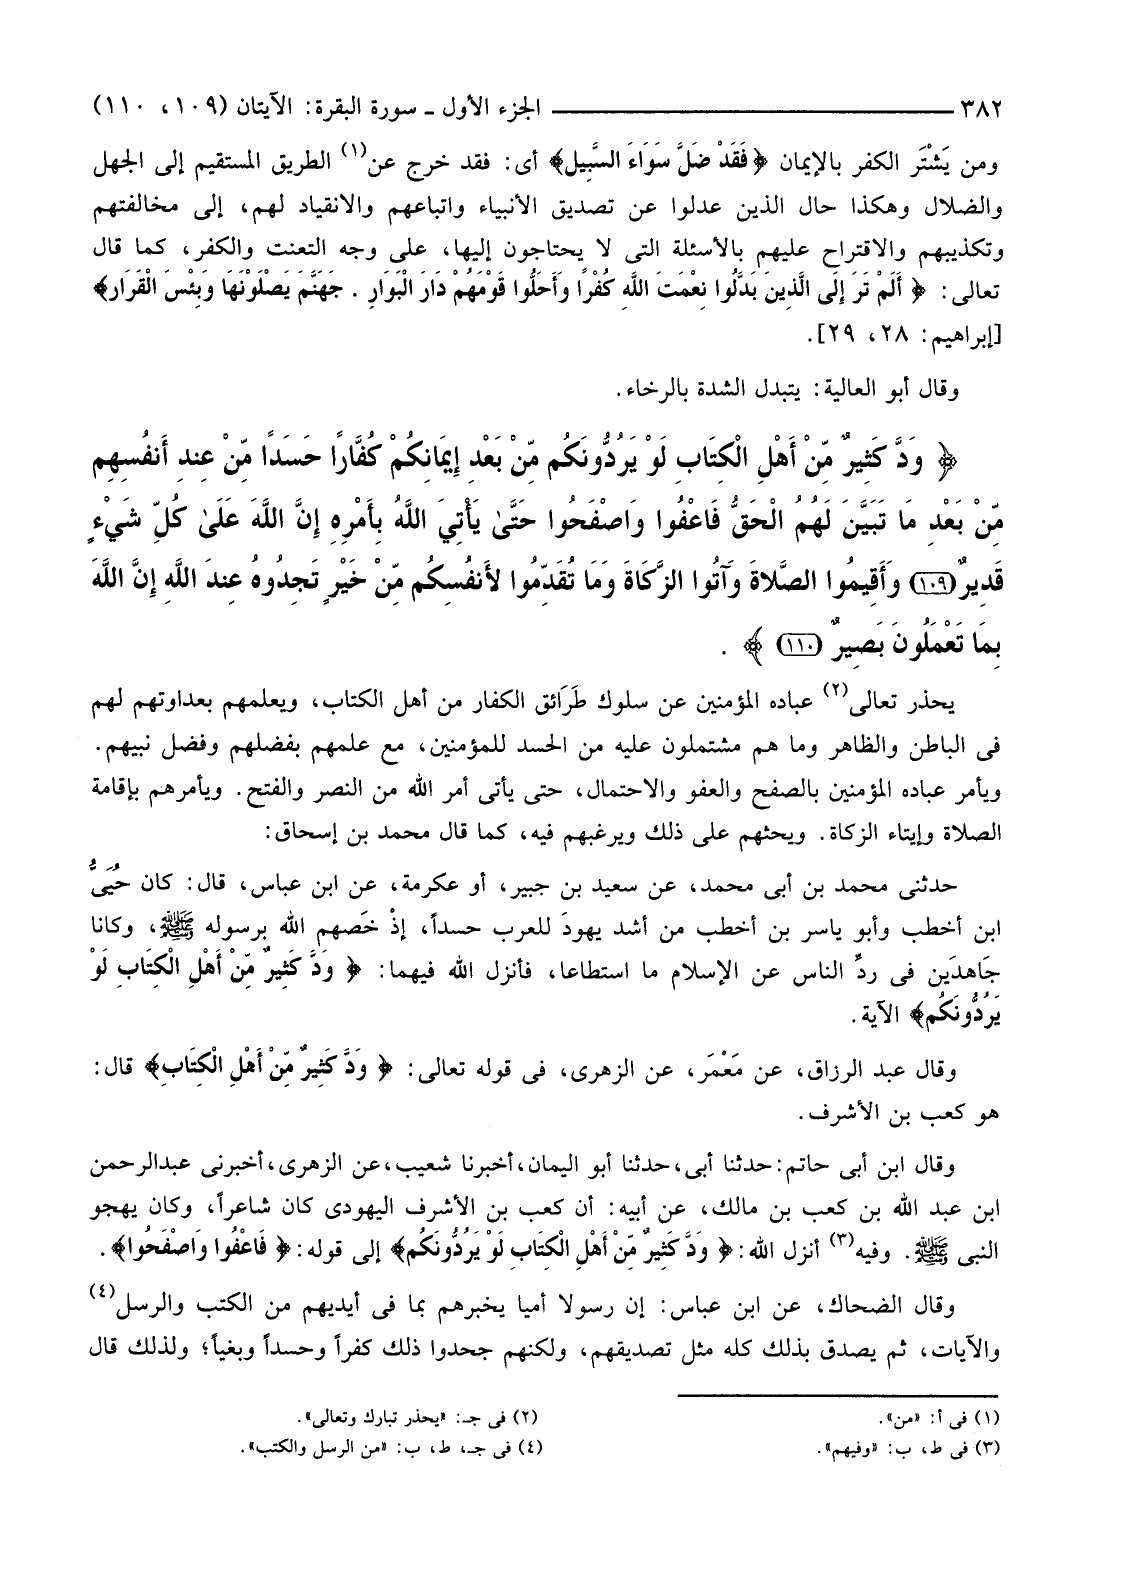 ٣٨٢ ــــــــــ الجزء الأول ـ سورة البقرة: الآيتان (١٠٩، ١١٠)
ومن يَشْتَر الكفر بالإيمان ﴿فَقَدْ ضَلَّ سَوَاءَ السَّبِيل﴾ أى: فقد خرج عن(١) الطريق المستقيم إلى الجهل
والضلال وهكذا حال الذين عدلوا عن تصديق الأنبياء واتباعهم والانقياد لهم، إلى مخالفتهم
وتكذيبهم والاقتراح عليهم بالأسئلة التى لا يحتاجون إليها، على وجه التعنت والكفر، كما قال
تعالى: ﴿أَلَمْ تَرَ إِلَى الَّذِينَ بَدَّلُوا نِعْمَتَ اللَّهِ كُفْرًا وَأَحَلُّوا قَوْمَهُمْ دَارَ الْبَوَارِ . جَهَنَّمَ يَصْلَوْنَهَا وَبِئْسَ الْقَرَار﴾
[إبراهيم: ٢٨، ٢٩].
وقال أبو العالية: يتبدل الشدة بالرخاء.
﴿ وَدَّ كَثِيرٌ مِّنْ أَهْلِ الْكِتَابِ لَوْ يَرُدُّونَكُم مِّنْ بَعْدِ إِيمَانِكُمْ كُفَّارًا حَسَدًا مِّنْ عِندِ أَنفُسِهِم
مِّنْ بَعْدِ مَا تَبَيَّنَ لَهُمُ الْحَقُّ فَاعْفُوا وَاصْفَحُوا حَتَّىٰ يَأْتِيَ اللَّهُ بِأَمْرِهِ إِنَّ اللَّهَ عَلَىٰ كُلِّ شَيْءٍ
قَدِيرٌ (١٠٩) وَأَقِيمُوا الصَّلاةَ وَآتُوا الزَّكَاةَ وَمَا تُقَدِّمُوا لأَنفُسِكُم مِّنْ خَيْرٍ تَجِدُوهُ عِندَ اللَّهِ إِنَّ اللَّهَ
بِمَا تَعْمَلُونَ بَصِيرٌ (١١٠) ﴾ .
يحذر تعالى(٢) عباده المؤمنين عن سلوك طَرَائق الكفار من أهل الكتاب، ويعلمهم بعداوتهم لهم
فى الباطن والظاهر وما هم مشتملون عليه من الحسد للمؤمنين، مع علمهم بفضلهم وفضل نبيهم.
ويأمر عباده المؤمنين بالصفح والعفو والاحتمال، حتى يأتى أمر الله من النصر والفتح. ويأمرهم بإقامة
الصلاة وإيتاء الزكاة. ويحثهم على ذلك ويرغبهم فيه، كما قال محمد بن إسحاق:
حدثنى محمد بن أبى محمد، عن سعيد بن جبير، أو عكرمة، عن ابن عباس، قال: كان حُيَىُّ
ابن أخطب وأبو ياسر بن أخطب من أشد يهودَ للعرب حسداً، إذْ خَصهم الله برسوله ﷺ، وكانا
جَاهدَين فى ردِّ الناس عن الإسلام ما استطاعا، فأنزل الله فيهما: ﴿وَدَّ كَثِيرٌ مِّنْ أَهْلِ الْكِتَابِ لَوْ
يَرُدُّونَكُم﴾ الآية.
وقال عبد الرزاق، عن مَعْمَر، عن الزهرى، فى قوله تعالى: ﴿وَدَّ كَثِيرٌ مِّنْ أَهْلِ الْكِتَابِ﴾ قال:
هو كعب بن الأشرف.
وقال ابن أبى حاتم: حدثنا أبى، حدثنا أبو اليمان، أخبرنا شعيب، عن الزهرى، أخبرنى عبدالرحمن
ابن عبد الله بن كعب بن مالك، عن أبيه: أن كعب بن الأشرف اليهودى كان شاعراً، وكان يهجو
النبى ﷺ. وفيه(٣) أنزل الله: ﴿وَدَّ كَثِيرٌ مِّنْ أَهْلِ الْكِتَابِ لَوْ يَرُدُّونَكُم﴾ إلى قوله: ﴿فَاعْفُوا وَاصْفَحُوا﴾.
وقال الضحاك، عن ابن عباس: إن رسولا أميا يخبرهم بما فى أيديهم من الكتب والرسل(٤)
والآيات، ثم يصدق بذلك كله مثل تصديقهم، ولكنهم جحدوا ذلك كفراً وحسداً وبغياً؛ ولذلك قال
(١) فى أ: «من».
(٢) فى جـ: «يحذر تبارك وتعالى».
(٣) فى ط، ب: «وفيهم».
(٤) فى جـ، ط، ب: «من الرسل والكتب».